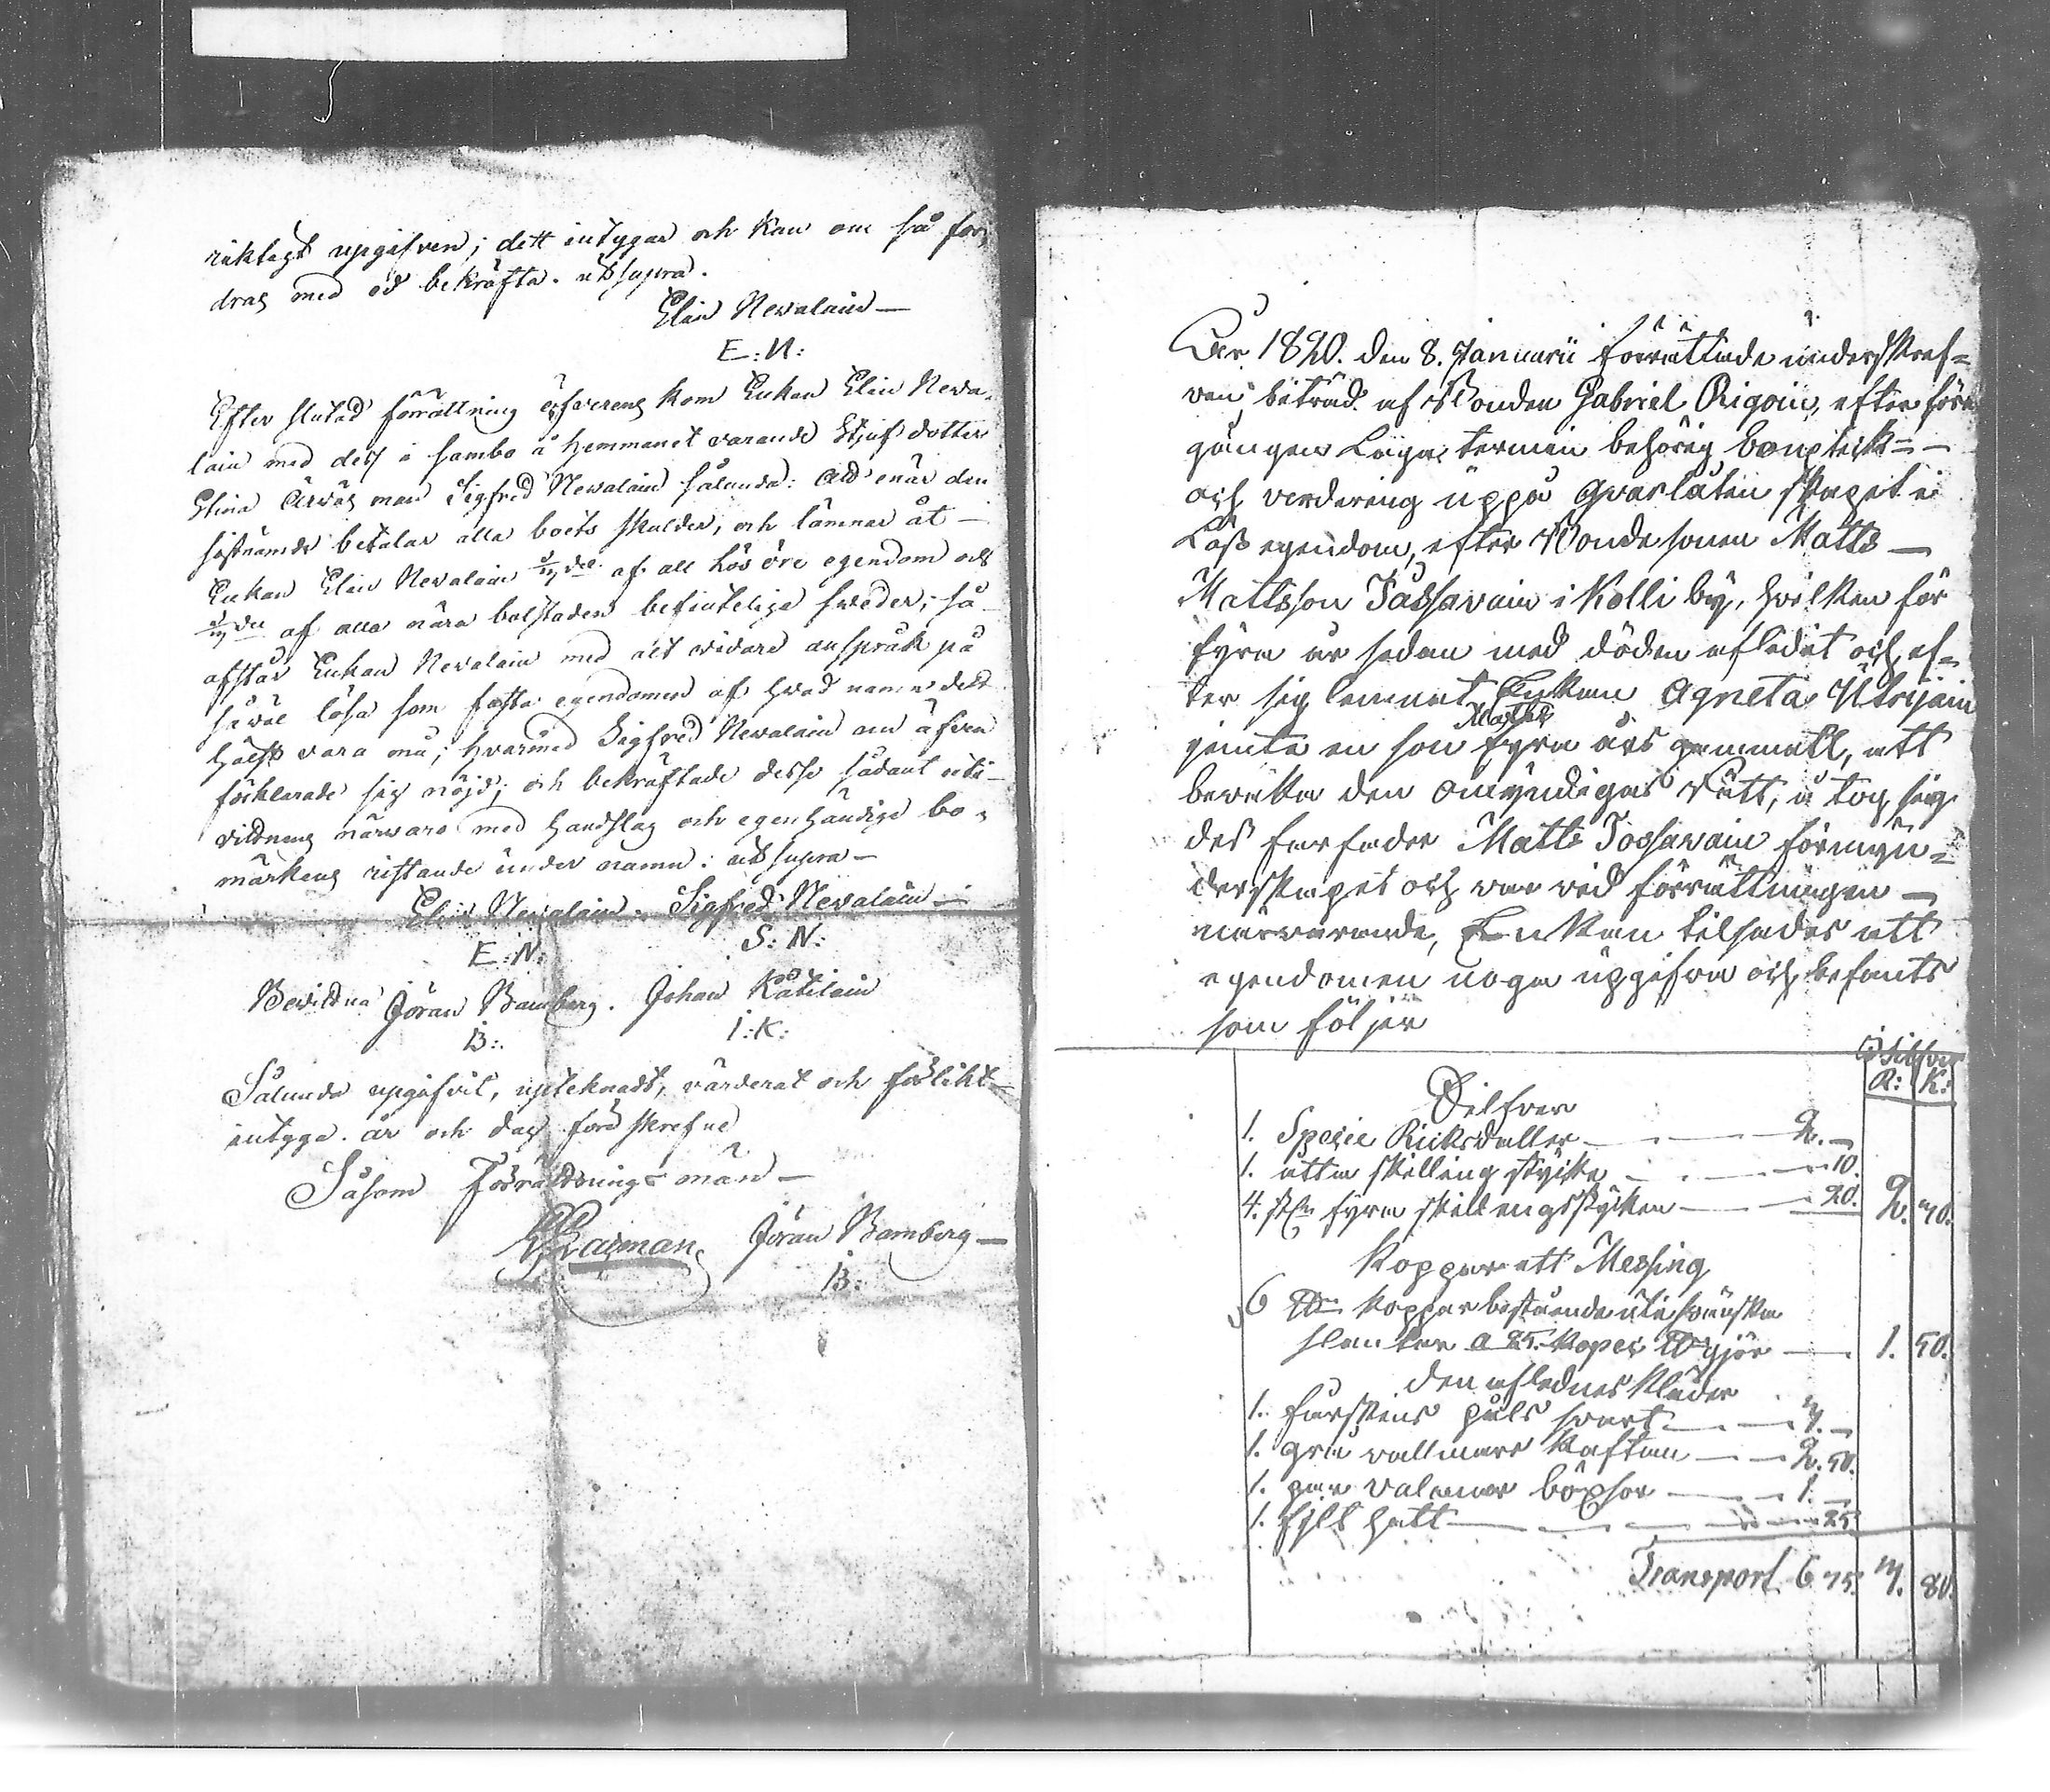 riktigt upgifven; dett intygar och kan om så for,
dras med ed bekräfta. ut supra.
Elin Newalain
E: N:
Efter slutad förättning öfverens kom Enkan Elin Newa,
lain med dess i sambo å hemmanet varande Stjuf dotter
Stina man Sigfred Newalain sålunda: at enär den
sistnämde betalar alla boets skulder, och lämnar åt
Enkan Elin Newalain af all lös öre egendom och
af alla nära bolstaden befintelige sweder; så
afstår Enkan Newalain med alt vidare anspråk på
såväl lösa som fasta egendomen af hvad namn det
hälst vara må; hvarmed Sigfred Newalain äfven
förklarade sig nöjd; och bekräftade desse sådant i be
vittnens närvaro med handslag och egenhändige bo,
märkens ristande under namn: ut supra
Elin Newalain. Sigfred Newalain
E: N: S: N:
Bevittna Jöran Bamberg. Johan Kätilain
B: I: K:
Sålunda upgifvit, upteknadt, värderat och förlikt
intyga. år och dag förr skrefne
Såsom Förrättnings män
Jöran Bamberg
B:
År 1820. den 8. Januarii förrättade underskref=
ven, biträd. af Bonden Gabriel Rigoin, efter före
gången Laga termin behörig bouptekn=
och verdering uppå qvarlåtenskapet i
Lös egendom, efter Bondesonen Matts
Mattsson Tossavain i Kolli by, hvilken för
fyra år sedan med döden aflidit och ef=
ter sig lemnat Enkan Agneta
Matts
jemte en son fyra års gammall, att
bevaka den omyndigas rätt, å tog sig
des farfader Matts Tossavain förmyn=
derskapet och var vid förrättningen
närvarande, Enkan tilsades att
egendomen noga upgifva och befants
som följer
Silfver
R: K:
Silfver
1. Specie Riksdaller 2.
1. åtta skilling stycke 10.
4. st fyra skillingsstycken 20. 2. 30.
Koppar att Messing
6 koppar bestående uti svenska
slantar a 25. kopek gjör 1. 50.
den aflednes kläder
1. fårskins päls svart 3.
1. grå vallmars kaftan 2. 50.
1. par valmar böxsor 1.
1. filt hatt 25
Transport 6 75. 3. 80.